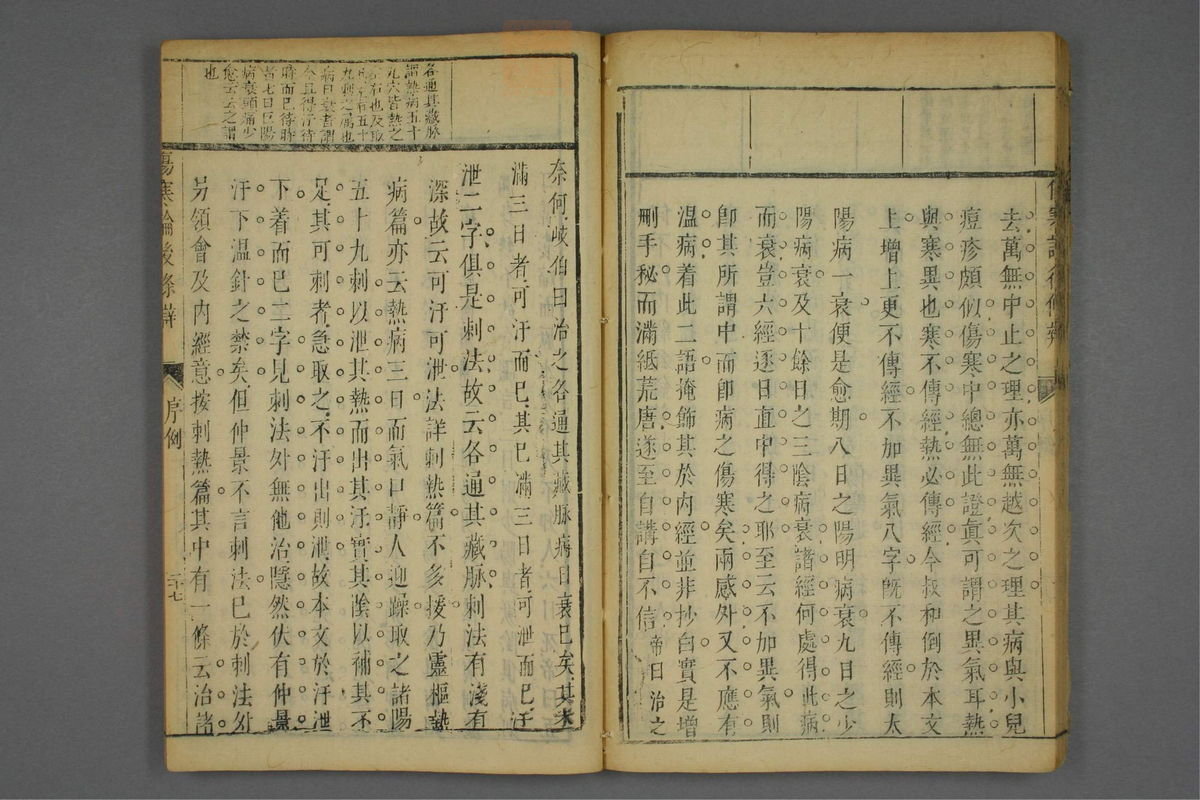 去萬無中止之理亦萬無越次之理其病與小兒
痘疹頗似傷寒中總無此證眞可謂之異氣耳熱
與寒異也寒不傳經熱必傳經今叔和倒於本文
上增上更不傳經不加異氣八字旣不傳經則太
陽病一衰便是愈期八日之陽明病衰九日之少
陽病衰及十餘日之三陰病衰諸經何處得此病
而衰豈六經逐日直中得之耶至云不加異氣則
卽其所謂中而卽病之傷寒矣兩感外又不應有
溫病着此二語掩飾其於內經並非抄白實是增
刪手秘而滿紙荒唐遂至自講自不信帝曰治之
各通其藏脉
謂熱病五十
九穴皆熱之
左右也及取
五十
九刺之屬也
病日衰者謂
今且得汗待
時而已待時
者七日巨陽
病衰頭痛少
愈云云之謂
也
奈何岐伯曰治之各通其藏脉病日衰已矣其未
滿三日者可汗而已其已滿三日者可泄而已汗
泄二字俱是刺法故云各通其藏脉刺法有淺有
深故云可汗可泄法詳刺熱篇不多援乃靈樞熱
病篇亦云熱病三日而氣口靜人迎躁取之諸陽
五十九刺以泄其熱而出其汗實其陰以補其不
足其可刺者急取之不汗出則泄故本文於汗泄
下着而已二字見刺法外無他治隱然伏有仲景
汗下溫針之禁矣但仲景不言刺法已於刺法外
另領會及內經意按刺熱篇其中有一條云治諸
傷寒論後條辯
序例
二十七